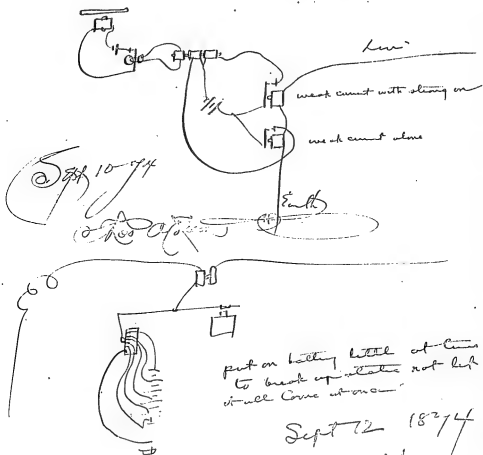 Line
weak current with strong on
weak current alone
Sept 10 - 74
Earth
put on battery little at time
to break up static not let
it all come at once
Sept 12 1874